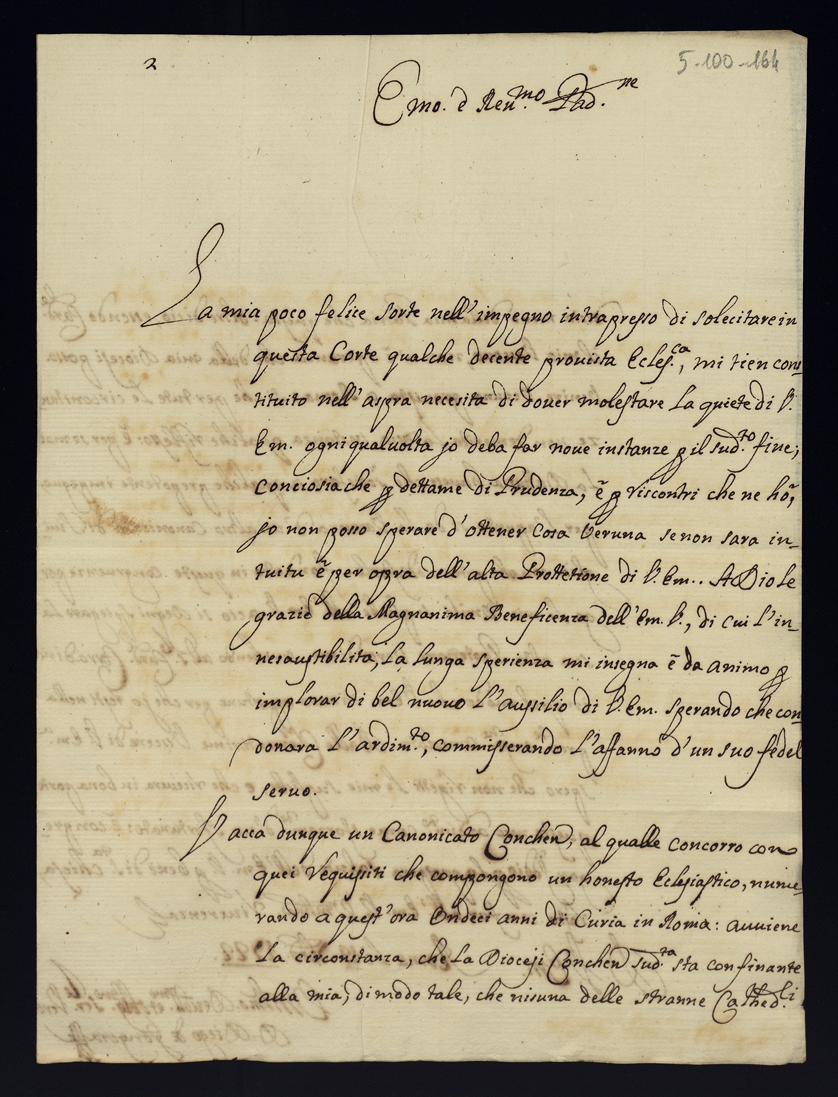 2
5-100-164
Emo. è Reu.mo Pad.ne
La mia poco felice sorte nell'impegno intrapresso di solecitare in
questa Corte qualche decente prouista Ecles.ca, mi tien cons
tituito nell'aspra necesita di douer molestare la quiete di V.
Em. ogniqualuolta jo deba far noue instanze p il sud.to fine;
Conciosiache p dettame di Prudenza, ẽ p riscontri che ne ho,
jo non posso sperare d'ottener cosa Veruna se non sara in-
tuitu ẽ per opra dell'alta Prottetione di V. Em.. A Dio le
grazie della Magnanima Beneficenza dell'Em. V., di cui l'in-
nesaustibilità, la lunga sperienza mi insegna ẽ da animo p
implorar di bel nuouo l'aussilio di V. Em. sperando che con
donara l'ardim.to, commisserando l'affanno d'un suo fedel
seruo.
Vacca dunque un Canonicato Conchen, al qualle concorro con
quei requissiti che compongono un honesto Eclesiastico, nume-
rando a quest'ora Ondeci anni di Curia in Roma: auuiene
la circonstanza, che la Diocesi Conchen sud.ta sta confinante
alla mia, di modo tale, che nisuna delle stranne Cathed.li